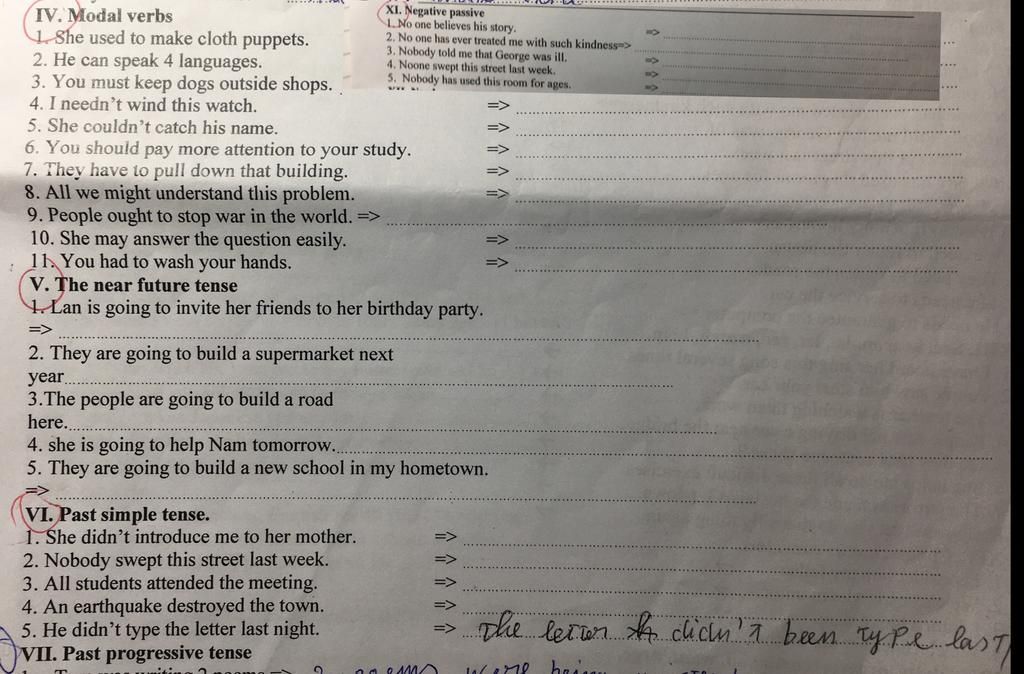 IV. Modal verbs
1. She used to make cloth puppets.
2. He can speak 4 languages.
3. You must keep dogs outside shops.
XI. Negative passive
1. No one believes his story. =>
2. No one has ever treated me with such kindness=>
3. Nobody told me that George was ill. =>
4. Noone swept this street last week. =>
5. Nobody has used this room for ages. =>
4. I needn't wind this watch. =>
5. She couldn't catch his name. =>
6. You should pay more attention to your study. =>
7. They have to pull down that building. =>
8. All we might understand this problem. =>
9. People ought to stop war in the world. =>
10. She may answer the question easily. =>
11. You had to wash your hands. =>
V. The near future tense
1. Lan is going to invite her friends to her birthday party.
=>
2. They are going to build a supermarket next
year
3.The people are going to build a road
here.
4. she is going to help Nam tomorrow.
5. They are going to build a new school in my hometown.
=>
VI. Past simple tense.
1. She didn't introduce me to her mother. =>
2. Nobody swept this street last week. =>
3. All students attended the meeting. =>
4. An earthquake destroyed the town. =>
5. He didn't type the letter last night. => The letter didn't been type last
VII. Past progressive tense